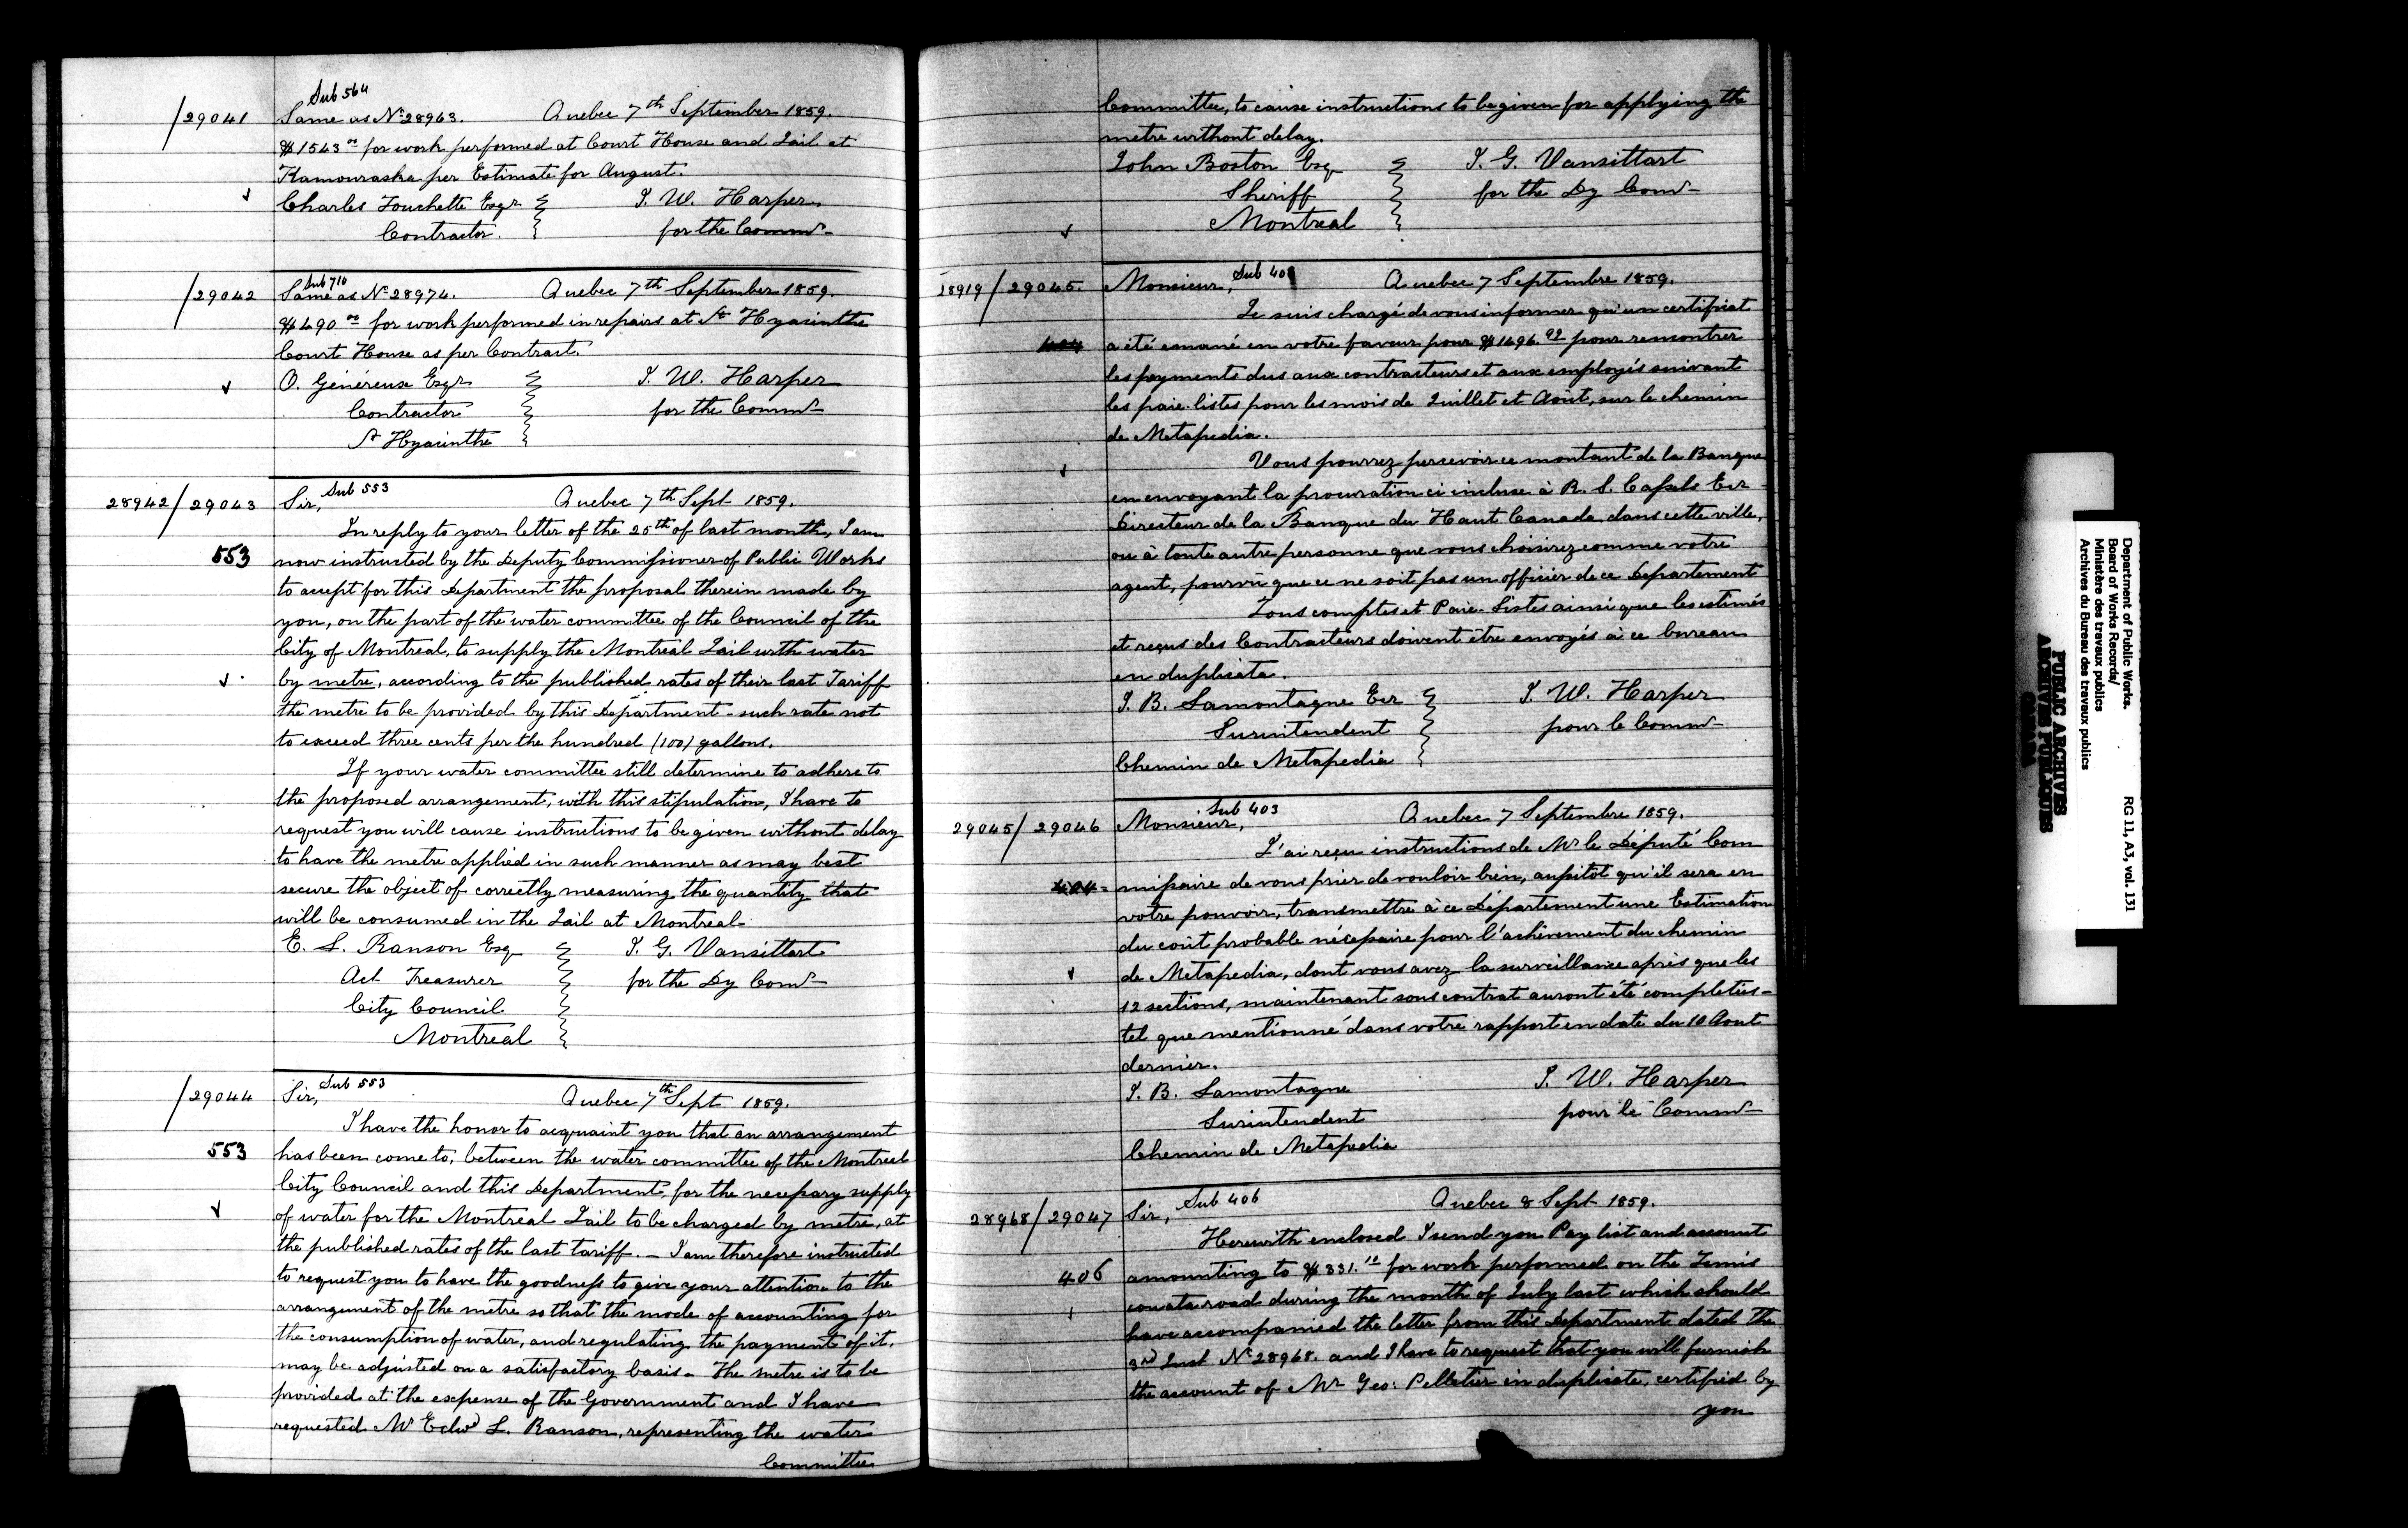 Sub 564
/29041 Same as No 28963. Quebec 7th September 1859.
$1543 00 for work performed at Court House and Jail at
Kamouraska per Estimate for August.
Charles Touchette Esqr J. W. Harper
Contractor. for the Commr
Sub 710
/29042 Same as No 28974. Quebec 7th September 1859.
$490 00 for work performed in repairs at St Hyacinthe
Court House as per Contract.
O. Généreux Esqr J. W. Harper
Contractor for the Commr
St Hyacinthe
28942/29043 Sir, Sub 553 Quebec 7th Sept 1859.
In reply to your letter of the 25th of last month, I am
553 now instructed by the Deputy Commissioner of Public Works
to accept for this Department the proposal therein made by
you, on the part of the water committee of the Council of the
City of Montreal, to supply the Montreal Jail with water
by metre, according to the published rates of their last Tariff
the metre to be provided by this Department - such rate not
to exceed three cents per the hundred (100) gallons.
If your water committee still determine to adhere to
the proposed arrangement, with this stipulation, I have to
request you will cause instructions to be given without delay
to have the metre applied in such manner as may best
secure the object of correctly measuring the quantity that
will be consumed in the Jail at Montreal.
E. L. Ranson Esq J. G. Vansittart
Act Treasurer for the Dy Comr
City Council
Montreal
/29044 Sir, Sub 553 Quebec 7th Sept 1859.
I have the honor to acquaint you that an arrangement
553 has been come to, between the water committee of the Montreal
City Council and this Department, for the necessary supply
of water for the Montreal Jail to be charged by metre, at
the published rates of the last tariff. - I am therefore instructed
to request you to have the goodness to give your attention to the
arrangement of the metre so that the mode of accounting for
the consumption of water, and regulating the payment of it,
may be adjusted on a satisfactory basis. The metre is to be
provided at the expense of the Government and I have
requested Mr Edwd L. Ranson, representing the water
Committee
Committee, to cause instructions to be given for applying the
metre without delay.
John Boston Esq J. G. Vansittart
Sheriff for the Dy Comr
Montreal
28919/29045. Monsieur, Sub 403 Quebec 7 Septembre 1859.
Je suis chargé de vous informer qu'un certificat
a été emané en votre faveur pour $1496. 92 pour rencontrer
les payments dus aux contracteurs et aux employés suivant
les paie-listes pour les mois de Juillet et Août, sur le chemin
de Metapedia.
Vous pourrez percevoir ce montant de la Banque
en envoyant la procuration ci incluse à R. S. Cassels Ecr
Directeur de la Banque du Haut Canada dans cette ville,
ou à toute autre personne que vous choisirez comme votre
agent, pourvû que ce ne soit pas un officier de ce Département
Tous comptes et Paie-Listes ainsi que les estimés
et reçus des Contracteurs doivent être envoyés à ce bureau
en duplicata.
J. B. Lamontagne Ecr J. W. Harper
Surintendent pour le Commr
Chemin de Metapedia
29045/29046 Monsieur, Sub 403 Quebec 7 Septembre 1859.
J'ai reçu instructions de Mr le Député Com
missaire de vous prier de vouloir bien, aussitôt qu'il sera en
votre pouvoir, transmettre à ce Département une Estimation
du coût probable nécessaire pour l'achèvement du chemin
de Metapedia, dont vous avez la surveillance après que les
12 sections, maintenant sous contrat auront été complétées -
tel que mentionné dans votre rapport en date du 10 Aout
dernier.
J. B. Lamontagne J. W. Harper
Surintendent pour le Commr
Chemin de Metapedia
28968/29047 Sir, Sub 406 Quebec 8 Sept 1859.
Herewith enclosed I send you Pay list and account
406 amounting to $331. 10 for work performed on the Temis
couata road during the month of July last which should
have accompanied the letter from this Department dated the
3rd Inst No 28968. and I have to request that you will furnish
the account of Mr Geo: Pelletier in duplicate, certified by
you
Department of Public Works. RG 11, A3, vol. 131
Board of Works Records/
Ministère des travaux publics
Archives du Bureau des travaux publics
PUBLIC ARCHIVES
ARCHIVES PUBLIQUES
CANADA